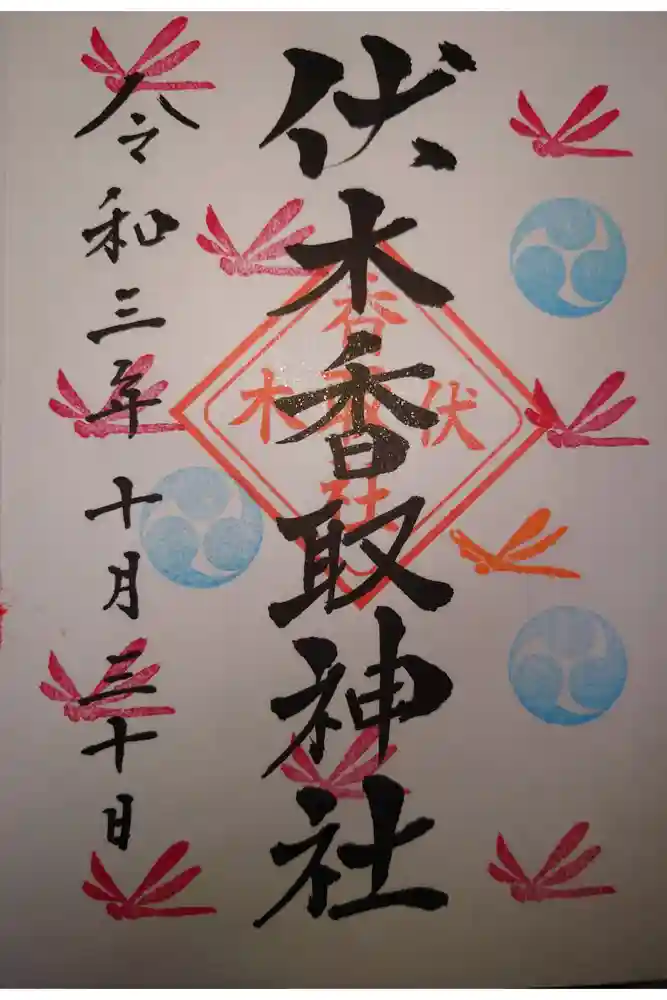 伏木香取神社
令和三年十月三十日
伏
香取神社
木